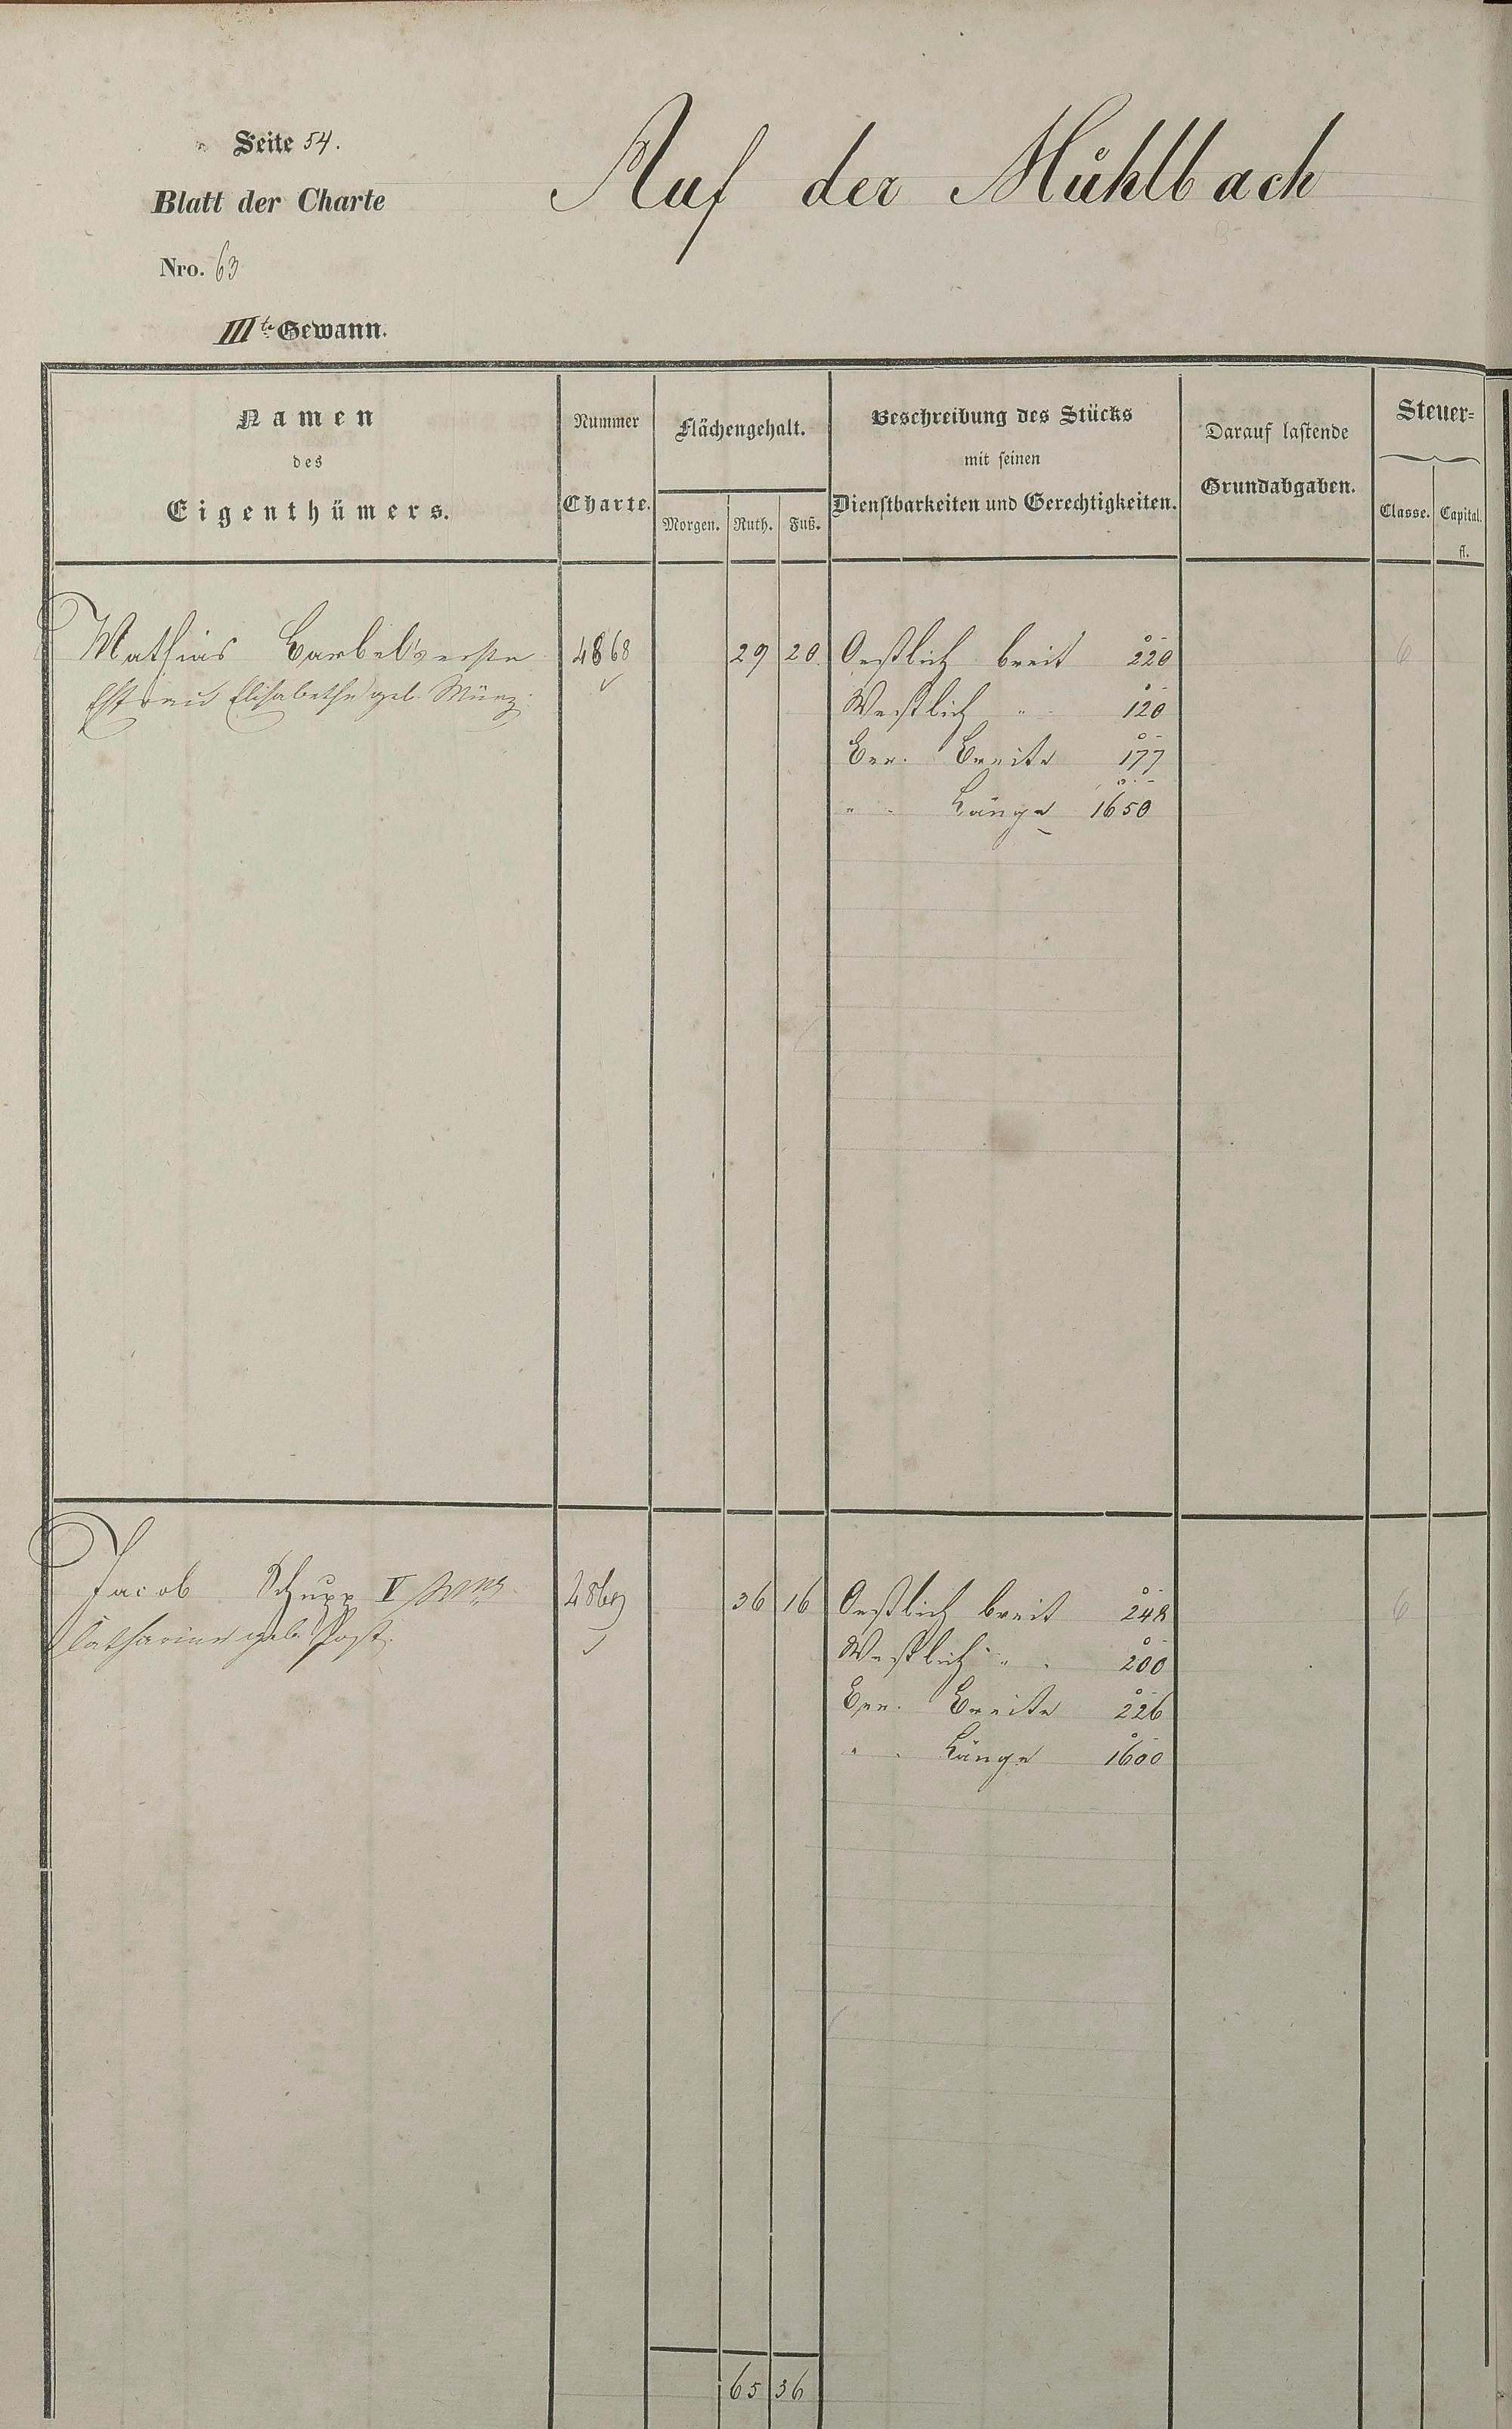 Seite 54.
Auf der Mühlbach
Blatt der Charte
Nro. 63
IIIte Gewann.
Namen
des
Eigenthümers.
Nummer
Charte.
Flächengehalt.
Morgen. Ruth. Fuß.
Beschreibung des Stücks
mit seinen
Dienstbarkeiten und Gerechtigkeiten.
Darauf lastende
Grundabgaben.
Steuer-
Classe. Capital.
fl.
Mathias erste 4868 29 20. Oestlich breit 220 6
Elisabethe geb. Münz Westlich " 120
Ger. Breite 177
" Länge 1650
Jacob Schupp V 4869 36 16 Oestlich breit 248 6
Catharine geb. Post. Westlich " 200
Ger. Breite 226
" Länge 1600
65 36